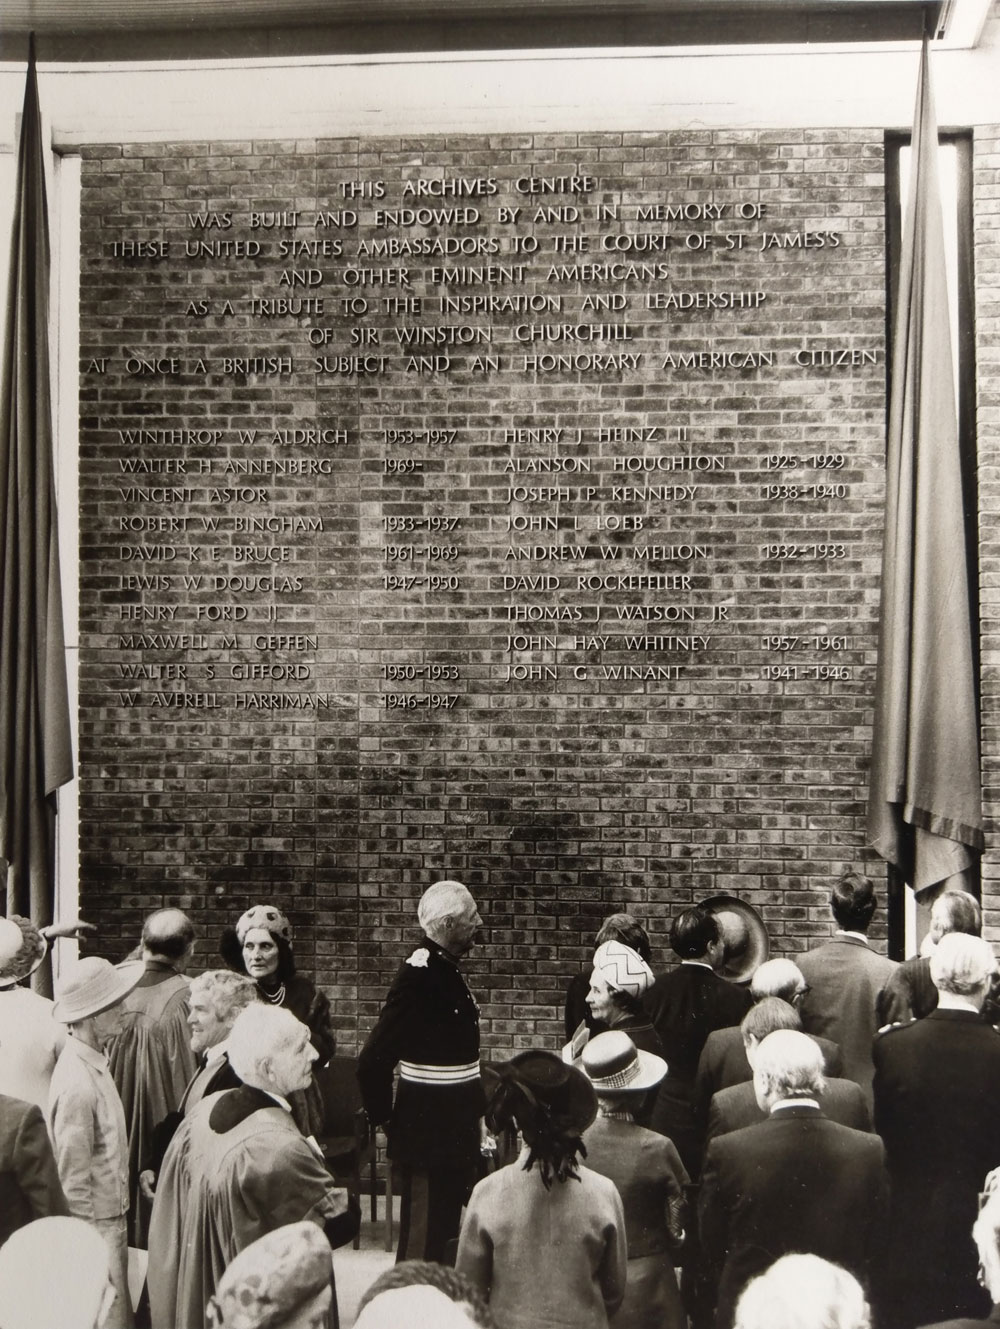 THIS ARCHIVES CENTRE
WAS BUILT AND ENDOWED BY AND IN MEMORY OF
THESE UNITED STATES AMBASSADORS TO THE COURT OF ST JAMES'S
AND OTHER EMINENT AMERICANS
AS A TRIBUTE TO THE INSPIRATION AND LEADERSHIP
OF SIR WINSTON CHURCHILL
AT ONCE A BRITISH SUBJECT AND AN HONORARY AMERICAN CITIZEN
WINTHROP W ALDRICH 1953-1957
WALTER H ANNENBERG 1969-
VINCENT ASTOR
ROBERT W BINGHAM 1933-1937
DAVID K E BRUCE 1961-1969
LEWIS W DOUGLAS 1947-1950
HENRY FORD II
MAXWELL M GEFFEN
WALTER S GIFFORD 1950-1953
W AVERELL HARRIMAN 1946-1947
HENRY J HEINZ II
ALANSON HOUGHTON 1925-1929
JOSEPH P KENNEDY 1938-1940
JOHN L LOEB
ANDREW W MELLON 1932-1933
DAVID ROCKEFELLER
THOMAS J WATSON JR
JOHN HAY WHITNEY 1957-1961
JOHN G WINANT 1941-1946